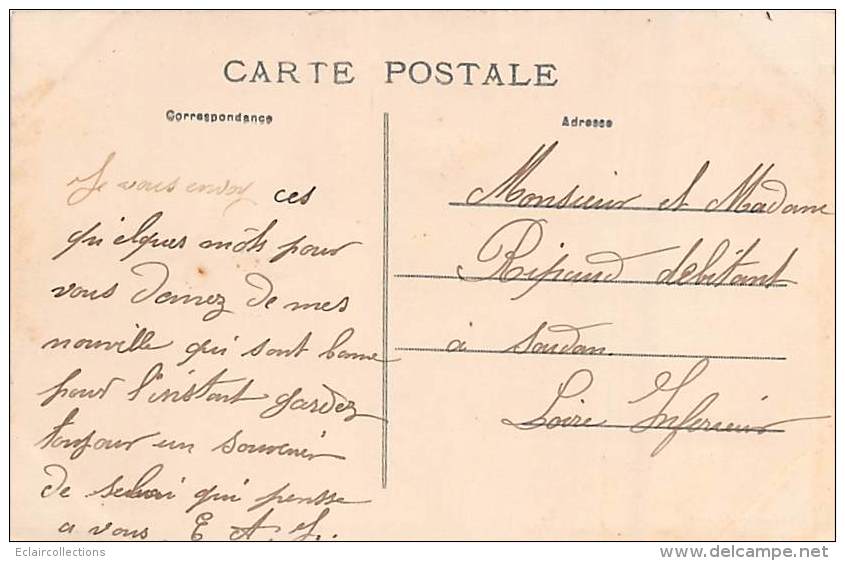 CARTE POSTALE
Correspondance
Je vous envoy ces
qu'elques môts pour
vous donnez de mes
nouville qui sont bonne
pour l'instant gardez
toujour un souvenir
de selui qui pensse
a vous. E A. J..
Adresse
Monsieur et Madame
Ripaud debitant
à Soudan.
Loire Inferieur
Eclaircollections
www.delcampe.net